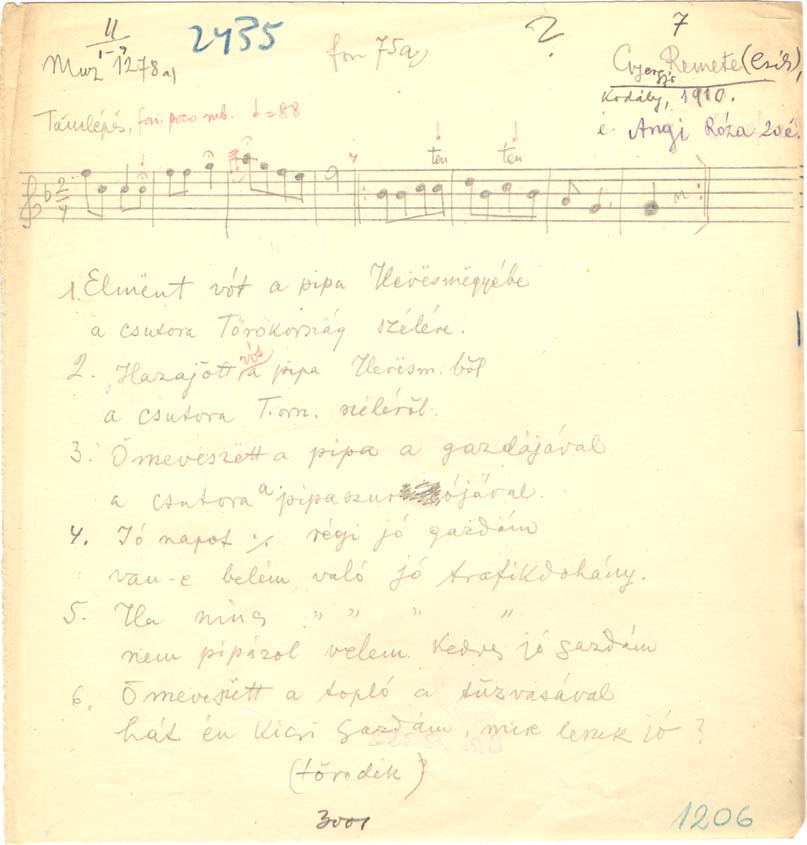 II
1-9
2435
?
7
Muz 1278a)
fon 75a)
Gyergyó Remete (Csík),
Kodály, 1910.
é. Angi Róza 20 é.
Támlépés, fon. poco mb. ♩=88
ten ten
2
4
1. Elmënt vót a pipa Hevësmëgyébe
a csutora Törökország szélére.
2. Hazajött vót a pipa Hevësm. ből
a csutora T.orsz. széléről.
3. Őmeveszett a pipa a gazdájával
a csutora a pipaszur ójával.
4. Jó napot ·/· régi jó gazdám
van-e belém való jó trafikdohány.
5. Ha nincs " " " "
nem pipázol velem kedves jó gazdám
6. Őmeveszëtt a topló a tűzvasával
hát én kicsi gazdám, mire leszek jó?
(töredék)
3001
1206